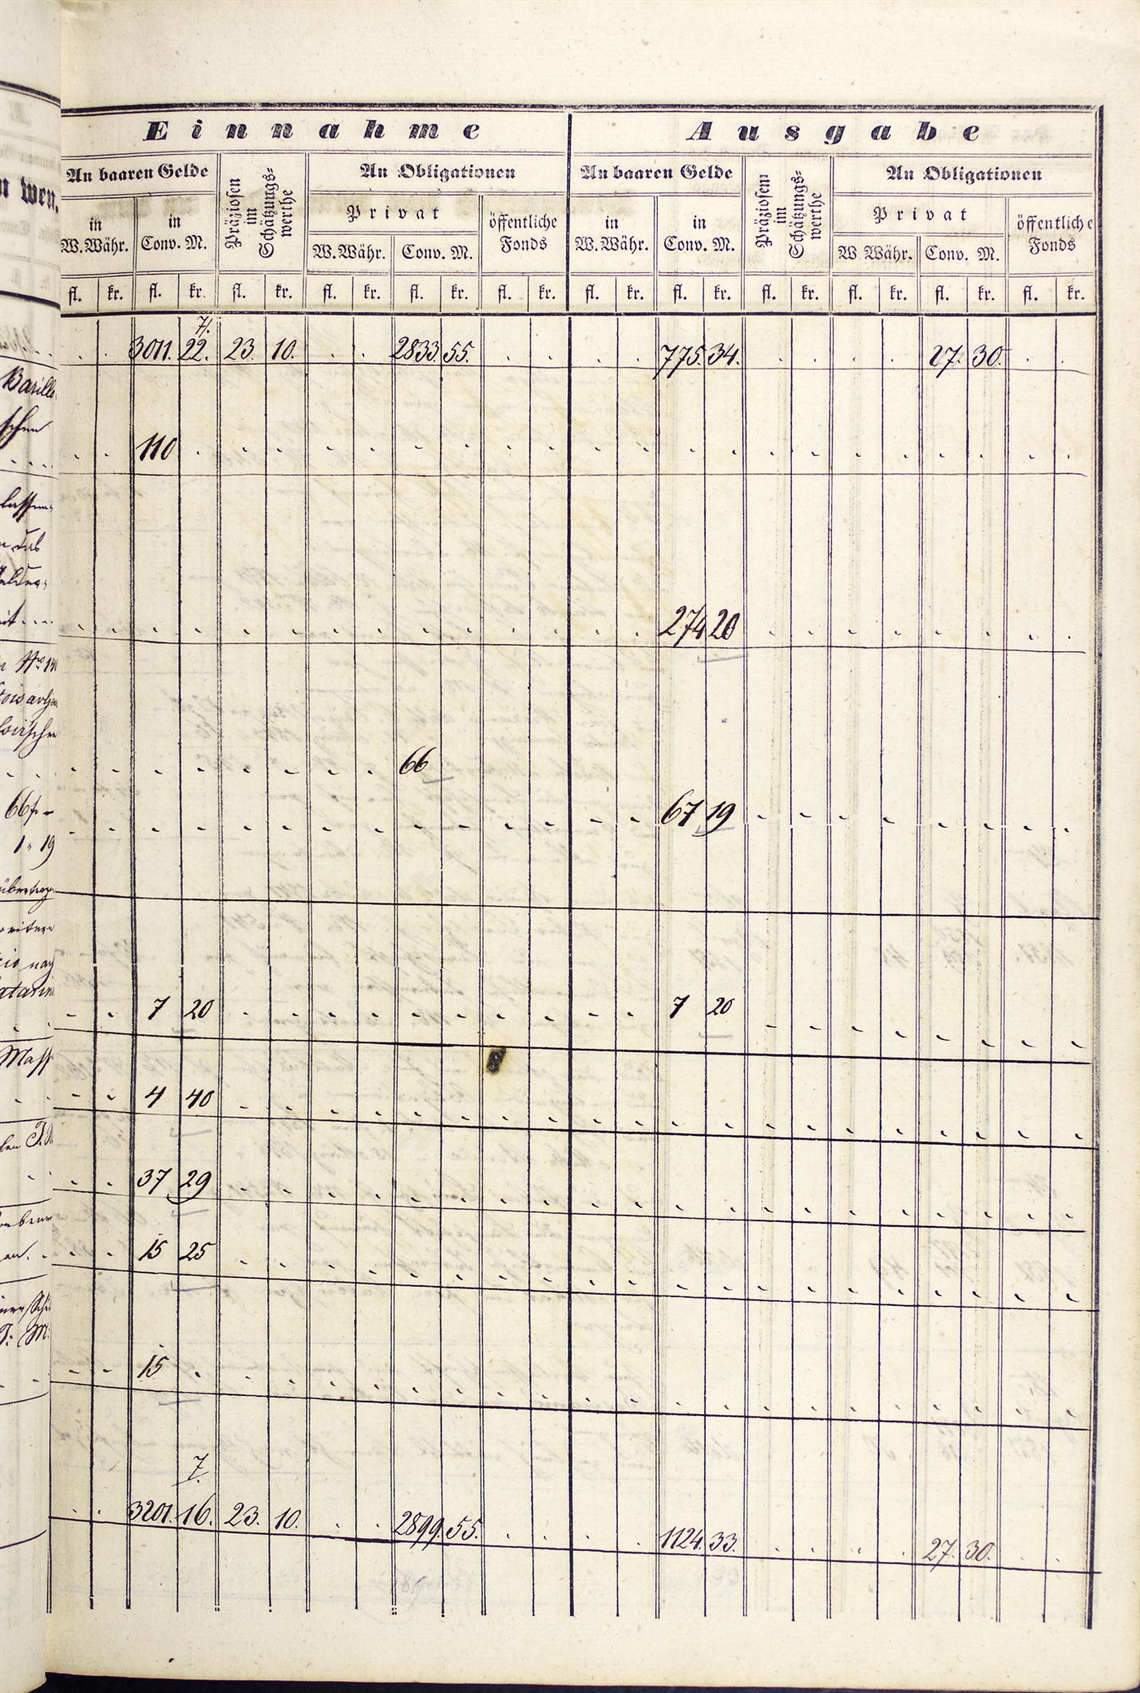 Einnahme Ausgabe
An baaren Gelde Präziosen im Schätzungs-werthe An Obligationen An baaren Gelde Präziosen im Schätzungs-werthe An Obligationen
Privat öffentliche Fonds Privat öffentliche Fonds
in W.Währ. in Conv. M. W.Währ. Conv. M. in W.Währ. in Conv. M. W Währ. Conv. M.
fl. kr. fl. kr. fl. kr. fl. kr. fl. kr. fl. kr. fl. kr. fl. kr. fl. kr. fl. kr. fl. kr. fl. kr.
3011. 22. 23. 10. 2833. 55. 775. 34. 27. 30.
110
274 20
66
67 19
7 20 7 20
4 40
37 29
15 25
15
7.
3201. 16. 23. 10. 2899. 55. 1124. 33. 27. 30.